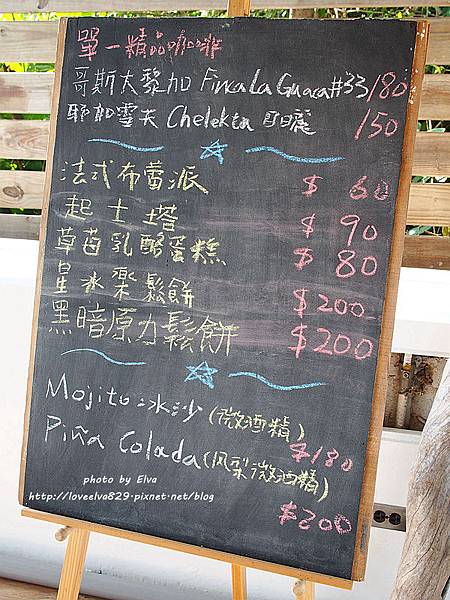 單一精品咖啡
哥斯大黎加 Finca La Guaca #33 /180
耶加雪夫 Chelekta 日曬 /150
法式布蕾派 $ 60
起士塔 $ 90
草苺乳酪蛋糕 $ 80
星冰樂鬆餅 $200
黑暗原力鬆餅 $200
Mojito 冰沙 (微酒精) $180
Piña Colada (鳳梨微酒精) $200
photo by Elva
http://loveelva829.pixnet.net/blog